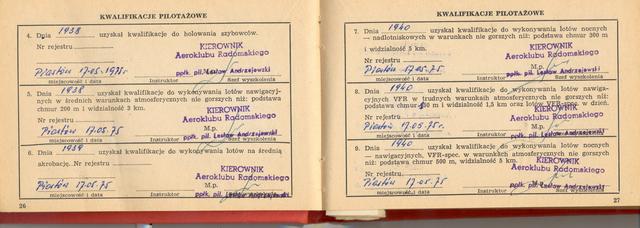 KWALIFIKACJE PILOTAŻOWE
4. Dnia 1938 uzyskał kwalifikacje do holowania szybowców.
Nr rejestru
KIEROWNIK
Aeroklubu Radomskiego
M.p.
ppłk. pil. Lesław Andrzejewski
Piastów 17.05.1975r.
miejscowość i data Instruktor Szef wyszkolenia
5. Dnia 1938 uzyskał kwalifikacje do wykonywania lotów nawigacyj-
nych w średnich warunkach atmosferycznych nie gorszych niż: podstawa
chmur 200 m i widzialność 3 km.
KIEROWNIK
Aeroklubu Radomskiego
ppłk. pil. Lesław Andrzejewski
Piastów 17.05.75
miejscowość i data Instruktor
6. Dnia 1939 uzyskał kwalifikacje do wykonywania lotów na średnią
akrobację. Nr rejestru
KIEROWNIK
Aeroklubu Radomskiego
M.p.
ppłk. pil. Lesław Andrzejewski
Piastów 17.05.75
miejscowość i data Instruktor
26
KWALIFIKACJE PILOTAŻOWE
7. Dnia 1940 uzyskał kwalifikacje do wykonywania lotów nocnych
— nadlotniskowych w warunkach nie gorszych niż: podstawa chmur 300 m
i widzialność 5 km.
KIEROWNIK
Aeroklubu Radomskiego
M.p.
ppłk. pil. Lesław Andrzejewski
Piastów 17.05.75
miejscowość i data Instruktor Szef wyszkolenia
8. Dnia 1940 uzyskał kwalifikacje do wykonywania lotów nawiga-
cyjnych VFR w trudnych warunkach atmosferycznych nie gorszych niż: pod-
stawa chmur i widzialność 1,5 km oraz lotów VFR-spec. w dzień.
KIEROWNIK
Aeroklubu Radomskiego
ppłk. pil. Lesław Andrzejewski
Piastów 17.05.75r.
miejscowość i data Instruktor
9. Dnia 1940 uzyskał kwalifikacje do wykonywania lotów nocnych
— nawigacyjnych, VFR-spec. w warunkach atmosferycznych nie gorszych niż:
podstawa chmur 500 m, widzialność 5 km.
KIEROWNIK
Aeroklubu Radomskiego
M.p.
ppłk. pil. Lesław Andrzejewski
Piastów 17.05.75
miejscowość i data Instruktor
27